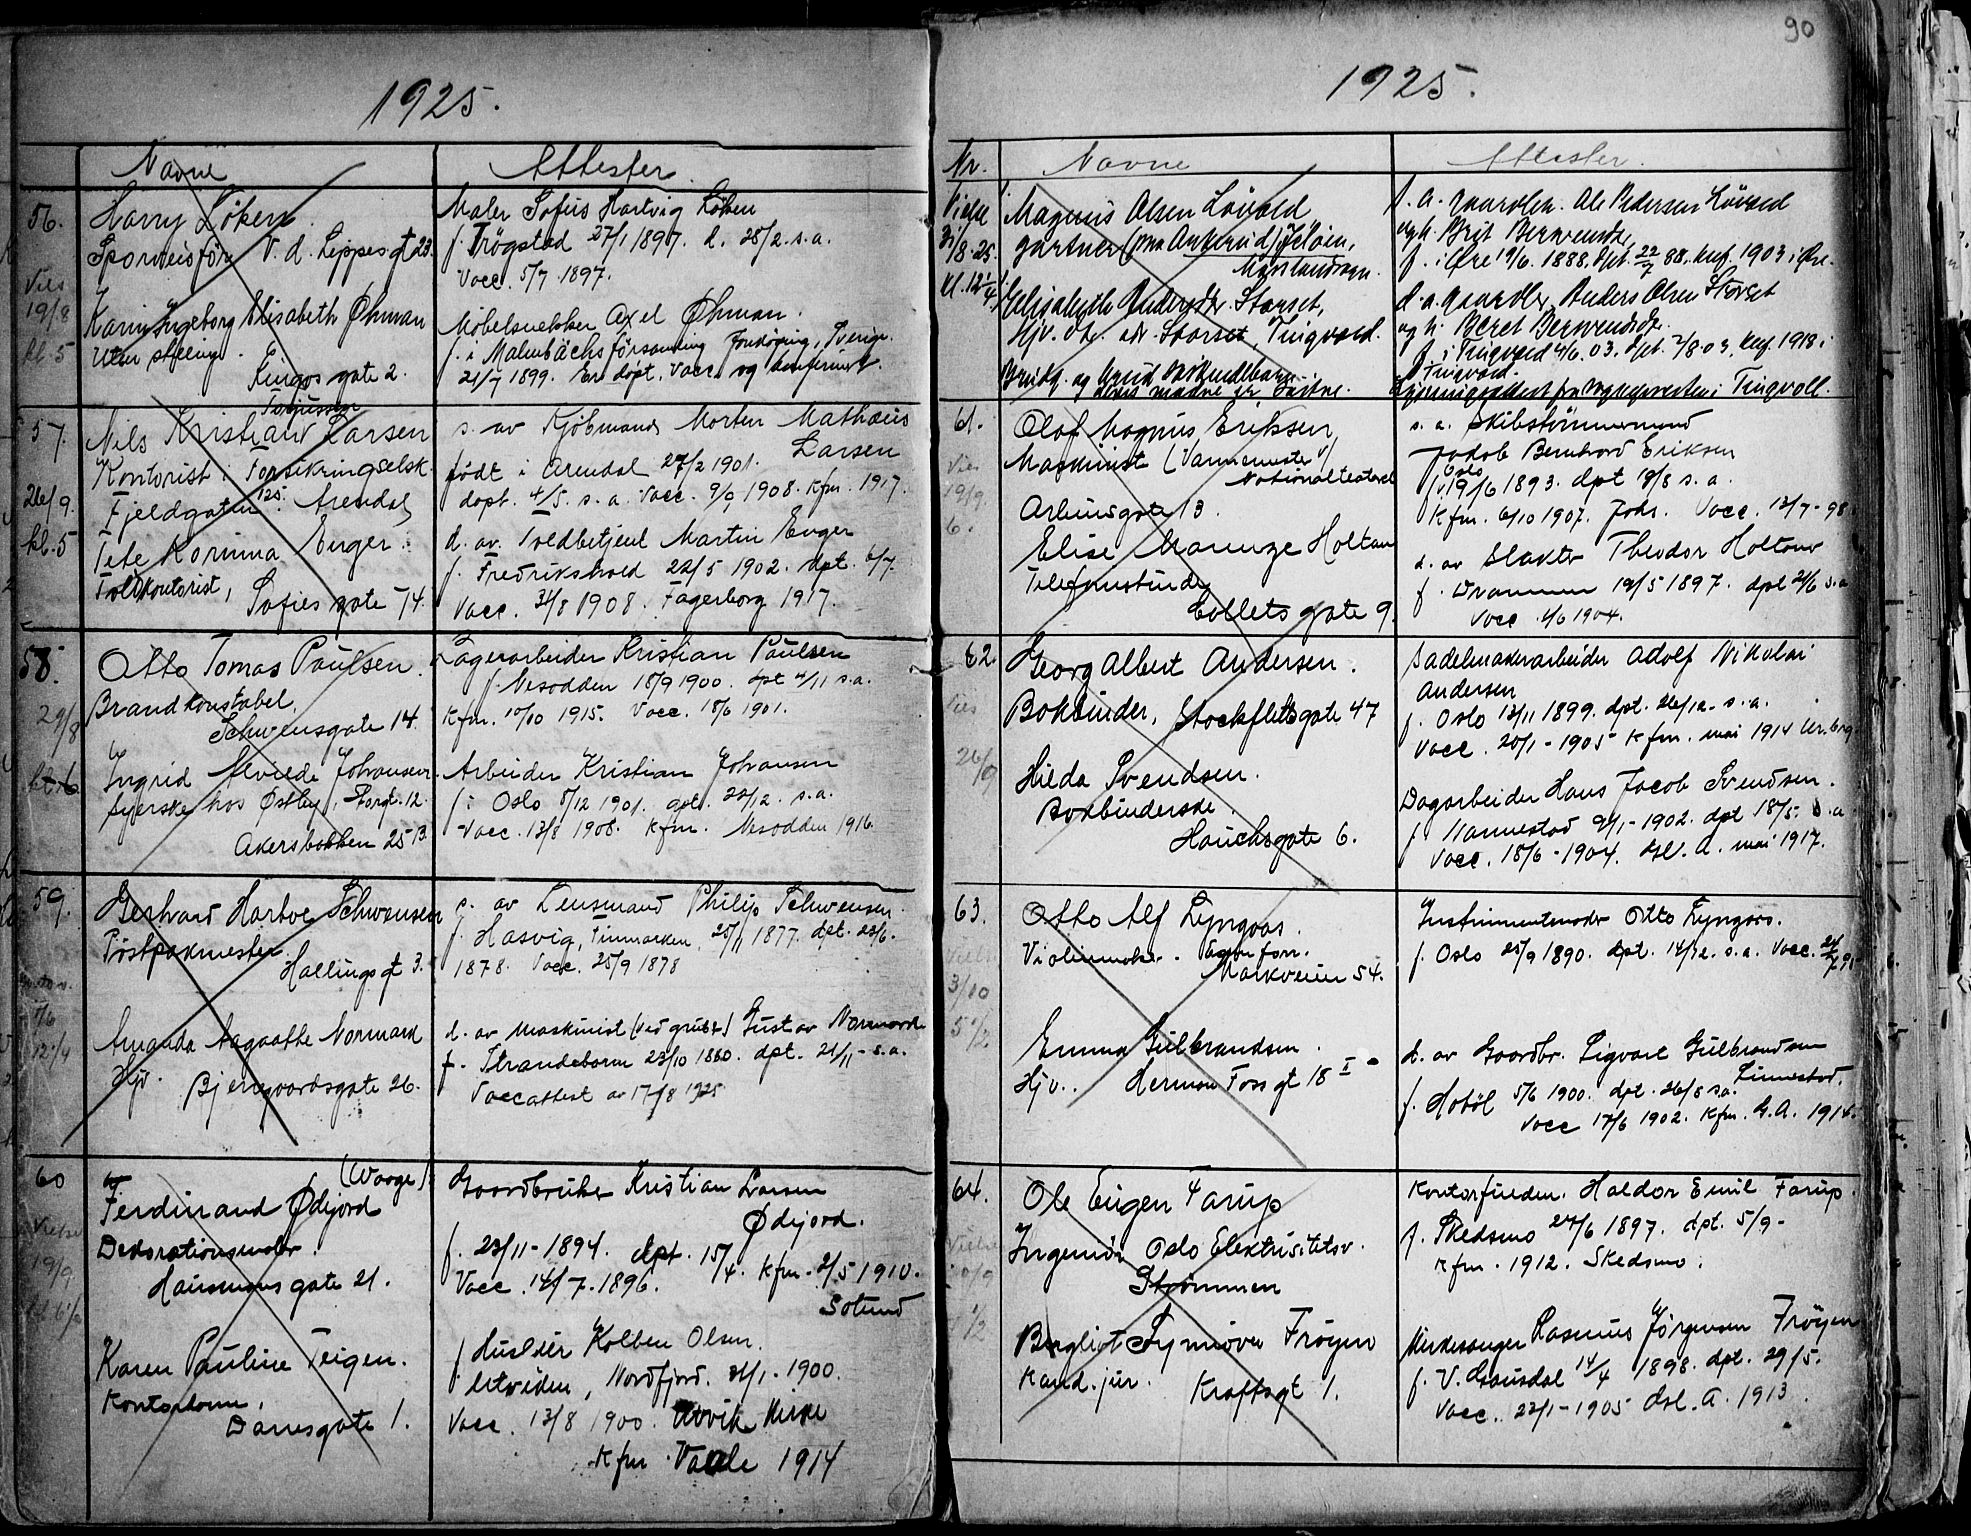 1925.
Navne
Attester.
56.
Vies
19/8
kl. 5
Harry Løken
Sporveisfør. V. d. Lippes gt 23
Karin Ingeborg Elisabeth Øhman
uten stilling.
Kingos gate 2.
Maler Sofus Hartvig Løken
f. Trøgstad 27/1 1897. d. 28/2 s.a.
Vacc. 5/7 1897.
Møbelsnekker Axel Øhman.
f. i Malmbächs församling Jönköping, Sverige
21/7 1899. Er døpt, vacc. og konfirmert.
57.
26/9.
kl. 5
Torjusen
Nils Kristian Larsen
Kontorist i Forsikringselsk.
Fjeldgaten Arendal
Korinna Enger.
Tollkontorist,
Sofies gate 74.
s. av Kjøbmand Morten Mathæus
Larsen
født i Arendal 27/2 1901.
døpt. 4/5. s. a. Vacc. 9/9 1908. Kfm. 1917.
d. av. Toldbetjent Martin Enger
f. Fredrikshald 22/5 1902. dpt. 6/7.
Vacc. 31/8 1908. Fagerborg 1917.
58.
29/8
Otto Tomas Paulsen.
Brandkonstabel,
Schwensgate 14.
Ingrid Alvilde Johansen
syerske hos Østby, Storgt. 12.
Akersbakken 25
Lagerarbeider Kristian Paulsen
f. Nesodden 18/9 1900. dpt 4/11 s.a.
Kfm. 10/10 1915. Vacc. 18/6 1901.
Arbeider Kristian Johansen
f. i Oslo 5/12 1901. dpt. 22/12. s.a.
Vacc. 13/8 1908. Kfm. Nesodden 1916.
59.
Gerhard Hartvig Schwensen
Postpakmester.
Hallings gt 3.
Amanda Aagathe Normark
Hjv. Bjerregaardsgate 26.
s. av Lensmand Philip Schwensen.
f. Hasvig, Finmarken, 25/11 1877. dpt. 23/6.
1878. Vacc. 25/9 1878
d. av Maskinist (ved grube) Gustav Normark
f. Strandebarm 23/10 1880. dpt. 21/11 - s.a.
Vaccattest av 17/8 1925
60
Vielse
19/9
(Waage)
Ferdinand Ødejord
Dekorationsmaler.
Hausmanns gate 21.
Karen Pauline Teigen.
Kontordame,
Daasgate 1.
Gaardbruker Kristian Larsen
Ødejord.
f. 23/11 - 1894. dpt. 15/4. kfm. 2/5 1910.
Vacc. 14/7. 1896.
Solund
f. Husleier Kolben Olsen.
Utviden, Nordfjord. 31/1. 1900.
Vacc. 13/8 1900. Utvik Kirke
Kfm Vaale 1914
90
1925.
Nr.
Navne
Attester.
Vielse
31/8. 25.
kl. 12 1/4
Magnus Olsen Løvold
gartner, Jeløen,
Elisabeth Andersdtr. Storset,
Storset, Tingvold.
s. a. gaardbr. Ole Pedersen Løvold
og h. Brit
f. i Øre 19/6. 1888, døpt. 22/7 88. konf. 1903 i Øre.
d. a. gaardbr. Anders Olsen Storset
og h. Beret
f. i Tingvold 4/6. 03. døpt. 2/8 03. konf. 1918 i
Tingvold.
Lysningsattest fra sogneprestens i Tingvoll.
61.
Vies
19/9.
6.
Olaf Magnus Eriksen
Maskinist (Vannmester v/
Nationalteatret
Arbinsgate 13.
Elise Marenze Holtan
Telefonistinde,
Collets gate 9.
s. a. Skibstømmermand
Jakob Bernhard Eriksen
Oslo
f. 19/6 1893. dpt 18/8 s. a.
Kfm. 6/10 1907. Johs. Vacc. 13/7 - 98.
d. av Slakter Theodor Holtan
f. Drammen 12/5 1897. dpt 21/6 s.a
Vacc. 1/6 1904.
62
Vies
26/9
Georg Albert Andersen.
Bokbinder, Stockfletsgate 47
Hilda Svendsen.
Bokbinderske.
Hauchsgate 6.
Sadelmakerarbeider Adolf Nikolai
Andersen
f. Oslo 13/11 1899. dpt. 26/12 - s. a.
Vacc. 20/1 - 1905 Kfm. mai 1914
Dagarbeider Hans Jacob Svendsen.
f. Nannestad 9/1 - 1902. dpt 18/5. s. a
Vacc. 18/6 - 1904. Gl. A. mai 1917.
63.
Vielse
3/10
5 1/2
Otto Alf Lyngaas.
Violinmaker.
Markveien 54.
Emma Gulbrandsen.
Hjv. Herman Foss gt 18 I
Instrumentmaker Otto Lyngaas.
f. Oslo 25/9 1890. dpt. 14/12. s. a. Vacc.
d. av Gaardbr. Sigvart Gulbrandsen
f. Hobøl 5/6 1900. dpt. 26/8 s.a.
Vacc 17/6 1902. Kfm. G. A. 1914.
64.
Vielse
Ole Eugen Farup
Ingeniør Oslo Elektrisitetsv.
Strømmen
Bergliot Synnøve Frøyen
Kand. jur. Krafts gt 1.
Kontorfuldm. Haldor Emil Farup.
f. Skedsmo 24/6 1897. dpt. 5/9 -
Kfm. 1912. Skedsmo.
Kirkesanger Rasmus Jørgensen Frøyen
f. V. Gausdal 14/4 1898. dpt. 29/5.
Vacc. 23/1 - 1905 Gl. A. 1913.